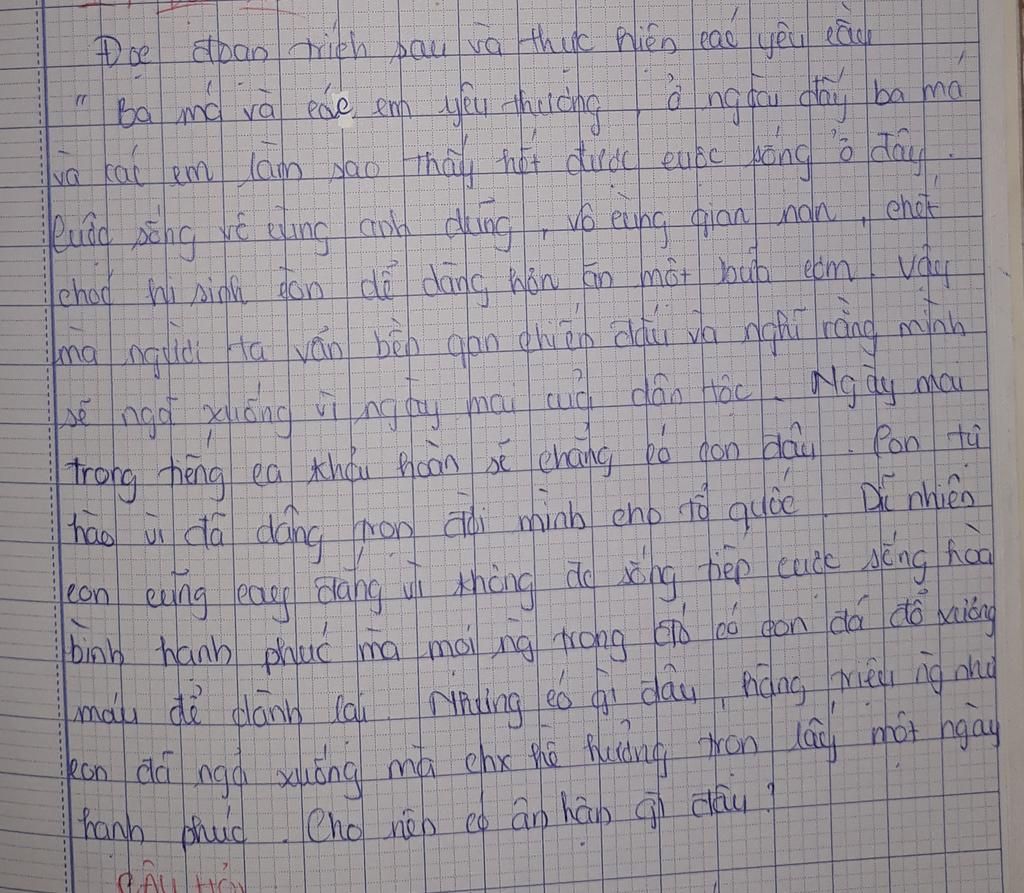 Đọc đoạn trích sau và thực hiện các yêu cầu
" Ba má và các em yêu thương, ở ngoài đấy ba má
và các em làm sao thấy hết được cuộc sống ở đây.
Cuộc sống vô cùng anh dũng, vô cùng gian nan, chết
chóc hi sinh còn dễ dàng hơn ăn một bữa cơm. Vậy
mà người ta vẫn bền gan chiến đấu và nghĩ rằng mình
sẽ ngã xuống vì ngày mai của dân tộc. Ngày mai
trong tiếng ca khải hoàn sẽ chẳng có con đâu. Con tự
hào vì đã dâng trọn đời mình cho tổ quốc. Dĩ nhiên
con cũng cay đắng vì không đc sống tiếp cuộc sống hoà
bình hạnh phúc mà mọi ng trong đó có con đã đổ xương
máu để giành lại. Nhưng có gì đâu, hàng triệu ng như
con đã ngã xuống mà chx hề hưởng trọn lấy một ngày
hạnh phúc. Cho nên có ân hận gì đâu?
CÂU HỎI